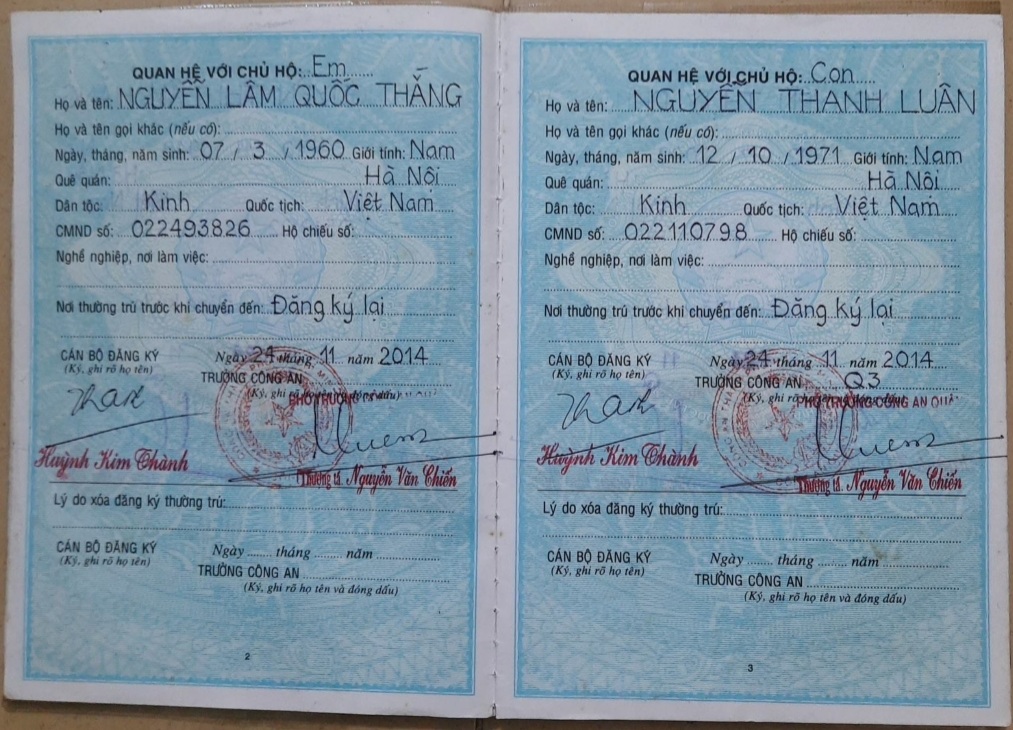 QUAN HỆ VỚI CHỦ HỘ: Em
Họ và tên: NGUYỄN LÂM QUỐC THẮNG
Họ và tên gọi khác (nếu có):
Ngày, tháng, năm sinh: 07 / 3 / 1960 Giới tính: Nam
Quê quán: Hà Nội
Dân tộc: Kinh Quốc tịch: Việt Nam
CMND số: 022493826 Hộ chiếu số:
Nghề nghiệp, nơi làm việc:
Nơi thường trú trước khi chuyển đến: Đăng ký lại
CÁN BỘ ĐĂNG KÝ Ngày 24 tháng 11 năm 2014
(Ký, ghi rõ họ tên) TRƯỞNG CÔNG AN
Huỳnh Kim Thành
Thượng tá. Nguyễn Văn Chiến
Lý do xóa đăng ký thường trú:
CÁN BỘ ĐĂNG KÝ Ngày ........ tháng ........ năm
(Ký, ghi rõ họ tên) TRƯỞNG CÔNG AN
(Ký, ghi rõ họ tên và đóng dấu)
2
QUAN HỆ VỚI CHỦ HỘ: Con
Họ và tên: NGUYỄN THANH LUÂN
Họ và tên gọi khác (nếu có):
Ngày, tháng, năm sinh: 12 / 10 / 1971 Giới tính: Nam
Quê quán: Hà Nội
Dân tộc: Kinh Quốc tịch: Việt Nam
CMND số: 022110798 Hộ chiếu số:
Nghề nghiệp, nơi làm việc:
Nơi thường trú trước khi chuyển đến: Đăng ký lại
CÁN BỘ ĐĂNG KÝ Ngày 24 tháng 11 năm 2014
(Ký, ghi rõ họ tên) TRƯỞNG CÔNG AN Q3
PHÓ TRƯỞNG CÔNG AN
Huỳnh Kim Thành
Thượng tá. Nguyễn Văn Chiến
Lý do xóa đăng ký thường trú:
CÁN BỘ ĐĂNG KÝ Ngày ........ tháng ........ năm
(Ký, ghi rõ họ tên) TRƯỞNG CÔNG AN
(Ký, ghi rõ họ tên và đóng dấu)
3